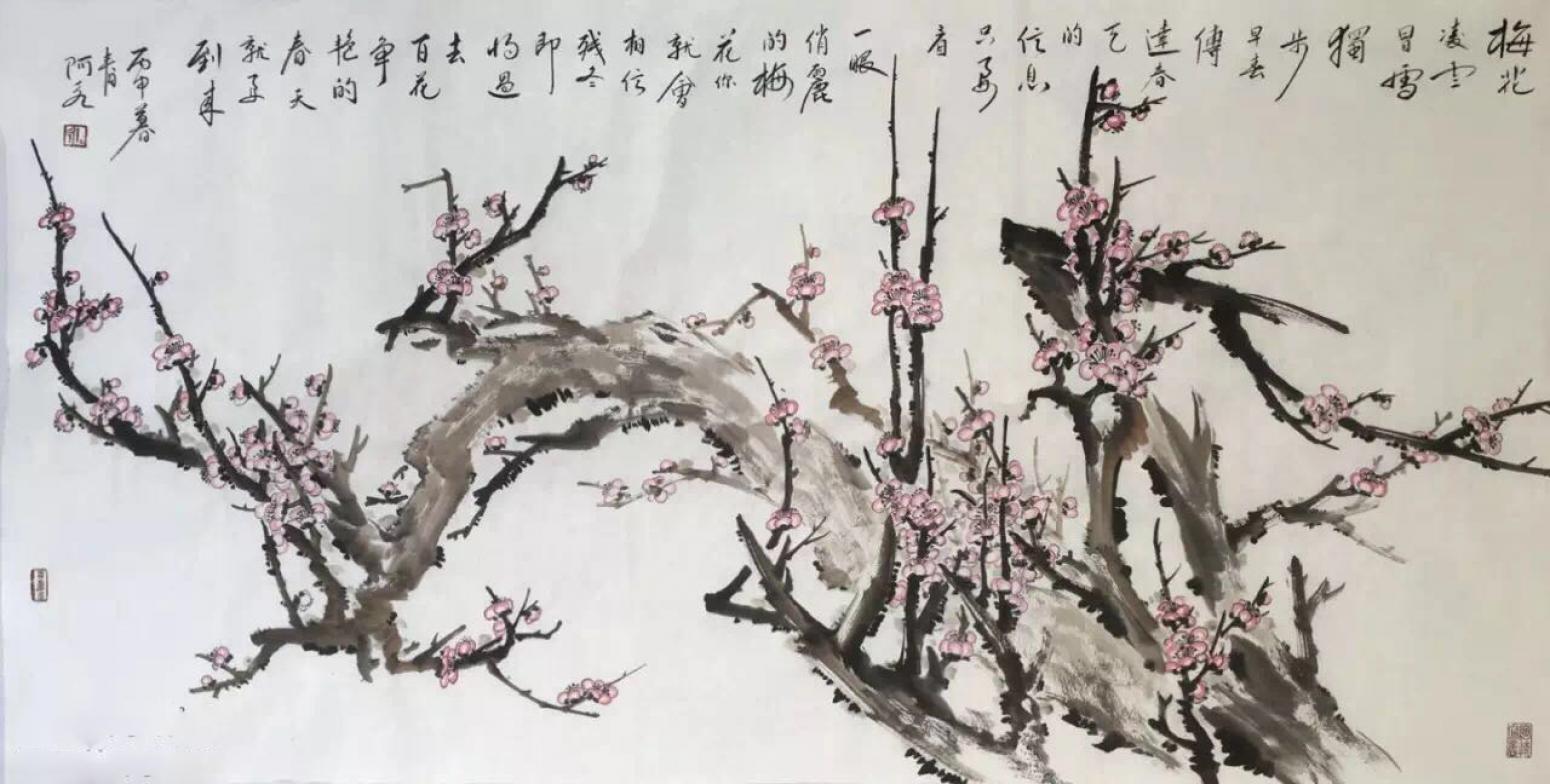 梅花
凌空
冒雪
獨
步
早春
傳
達春
天
的
信息
只要
看
一眼
俏麗
的梅
花你
就會
相信
殘冬
即
將過
去
百花
争
艳的
春天
就要
到来
丙申
阿